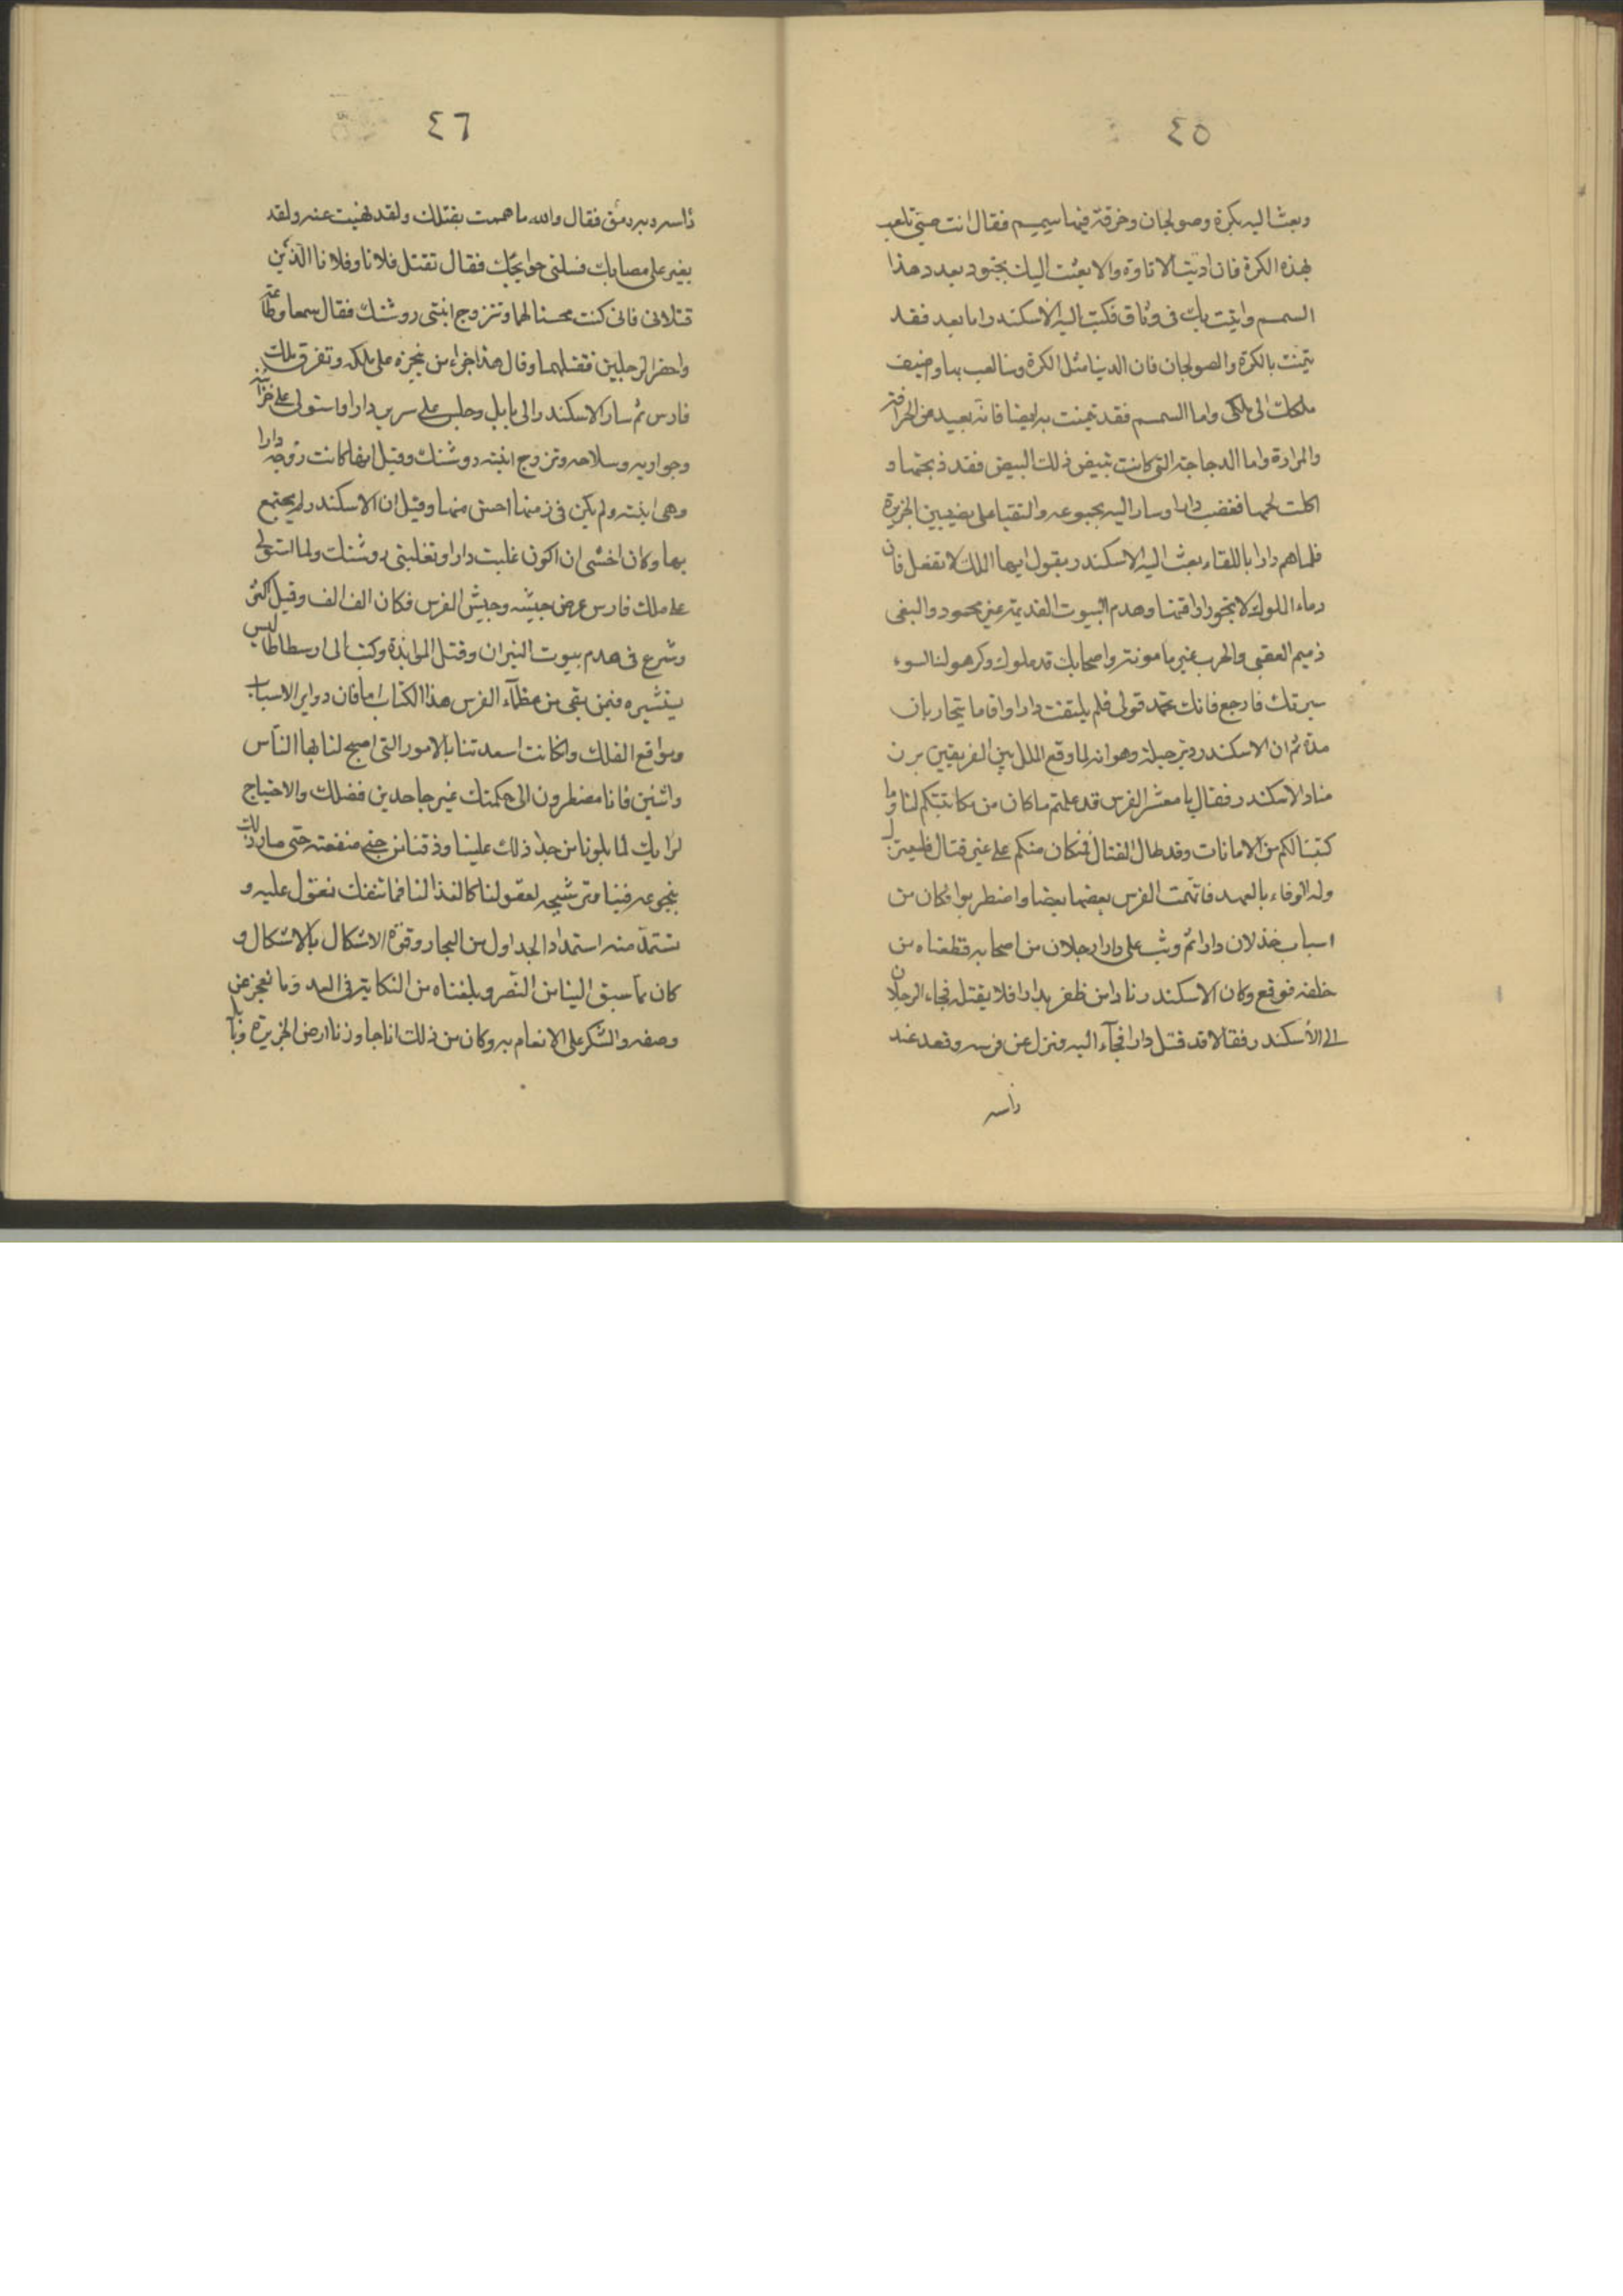 ٤٥
وبعث اليه بكرة وصولجان وخرقة فيها سمسم فقال انت صبي تلعب
بهذه الكرة فان اديت الاتاوة والا بعثت اليك بجنود بعدد هذا
السمسم واتيت بك في وثاق فكتب اليه الاسكندر اما بعد فقد
تيمنت بالكرة والصولجان فان الدنيا مثل الكرة وسالعب بها واضيف
ملكك الى ملكي واما السمسم فقد تيمنت به ايضا فانه بعيد من الحرافة
والمرارة واما الدجاجة التي كانت تبيض ذلك البيض فقد ذبحتها و
اكلت لحمها فغضب دارا وسار اليه بجموعه والتقيا على نصيبين الجزيرة
فلما هم دارا باللقاء بعث اليه الاسكندر يقول ايها الملك لا تفعل فان
دماء الملوك لا يجوز اراقتها وهدم البيوت القديمة غير محمود والبغي
ذميم العقبى والحرب غير مامونة واصحابك قد ملوك وكرهوك لسوء
سيرتك فارجع فانك تحمد قولي فلم يلتفت دارا واقاما يتحاربان
مدة ثم ان الاسكندر دبر حيلة وهو انه لما وقع الملل بين الفريقين برز
مناد الاسكندر فقال يا معشر الفرس قد علمتم ما كان من مكاتبتكم لنا وما
كتبنا لكم من الامانات وقد طال القتال فمن كان منكم على غير قتال فليعتزل
وله الوفاء بالعهد فاتهمت الفرس بعضها بعضا واضطربوا وكان من
اسباب خذلان دارا ثم وثب على دارا رجلان من اصحابه فطعناه من
خلفه فوقع وكان الاسكندر نادا من ظفر بدارا فلا يقتله فجاء الرجلان
الى الاسكندر فقالا قد قتل دارا فجآء اليه ونزل عن فرسه وقعد عند
راسه
٤٦
راسه وبه رمق فقال والله ما هممت بقتلك ولقد نهيت عنه ولقد
يغير على مصابك فسلني حوايجك فقال تقتل فلانا وفلانا الذين
قتلانى فانى كنت محسنا لهما وتتزوج ابنتى روشنك فقال سمعا وطاعة
واحضر الرجلين فقتلهما وقال هذا جزاء من تجرء على ملكه وتفرق ملك
فارس ثم سار الاسكندر الى بابل وجلس على سرير دارا واستولى على خزآئنه
وجواريه وسلاحه وتزوج ابنته روشنك وقيل انها كانت زوجة دارا
وهى ابنته ولم يكن فى زمنها احسن منها وقيل ان الاسكندر لم يجتمع
بها وكان اخشى ان اكون غلبت دارا وتغلبنى روشنك ولما استولى
على ملك فارس عرض جيشه وجيش الفرس فكان الف الف وقيل اكثر
وشرع فى هدم بيوت النيران وقتل الموابذة وكتب الى ارسطاطاليس
يستشيره فيمن بقى من عظمآء الفرس هذا الكتاب اما فان دواير الاسباب
ومواقع الفلك وان كانت اسعدتنا بالامور التى اصبح لنا بها الناس
دائنين فانا مضطرون الى حكمتك غير جاحدين فضلك والاحتياج
لرايك لما بلونا من جدا ذلك علينا وذقنا من جنى منفعته حتى صار ذلك
بنجوعه فينا وترشيحه لعقولنا كالغذا لنا فما تنفك نعول عليه و
نستمد منه استمداد الجداول من البحار وقوة الاشكال بالاشكال و
كان مما سبق الينا من النصر وبلغناه من النكاية فى العدو ما نعجز عن
وصفه والشكر على الانعام به وكان من ذلك انا جاوزنا ارض الجزيرة وبابل